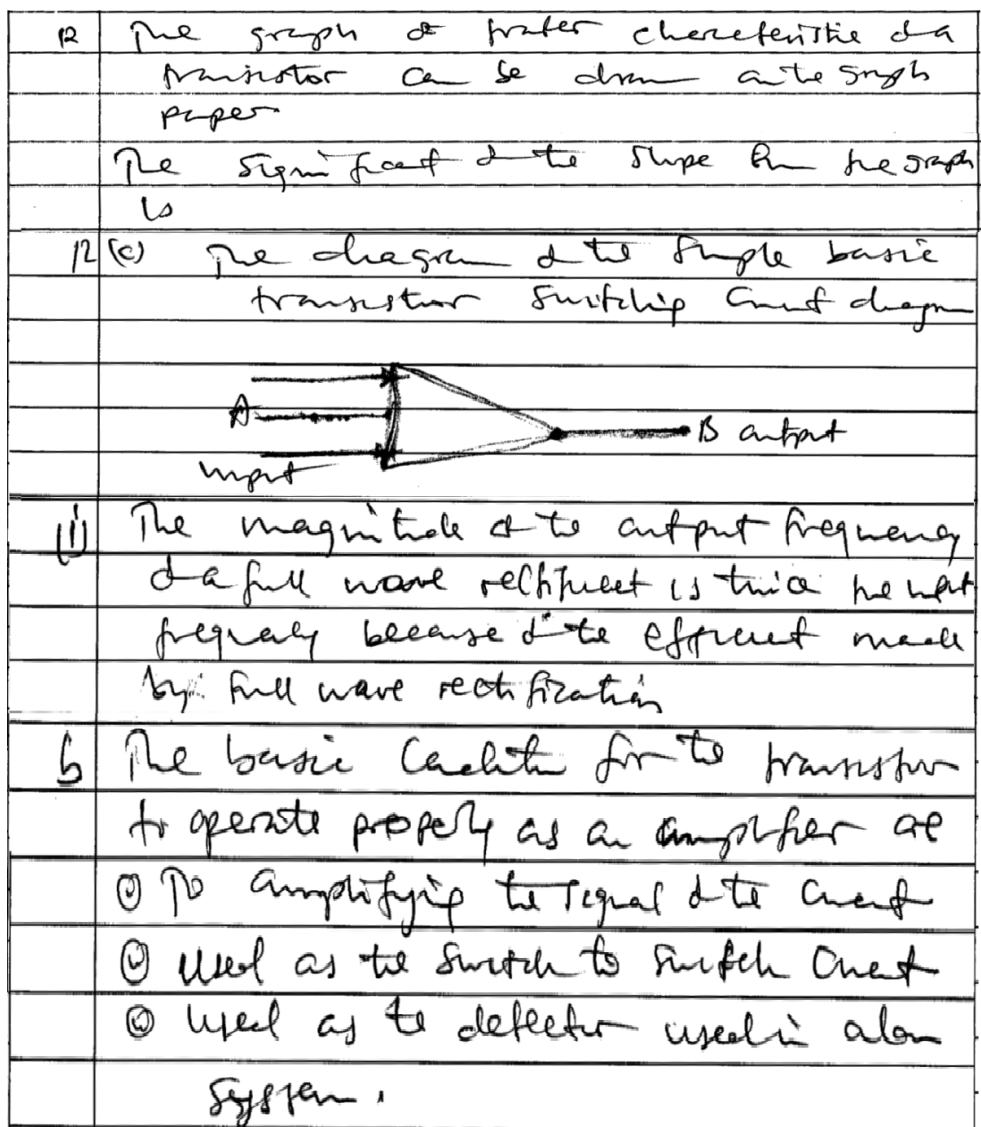 12 The graph of characteristic of a
transistor can be drawn on the graph
paper
The significant of the slope from the graph
is
12 (c) The diagram of the simple basic
transistor switching circuit diagram
A
B output
input
(i) The magnitude of the output frequency
of a full wave is twice the input
frequency because of the made
by full wave rectification
b The basic for the transistor
to operate properly as an amplifier are
(i) To amplifying the signal of the
(ii) Used as the switch to switch
(iii) Used as the detector used in alarm
system.